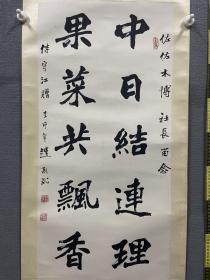 佐佐木博社長留念
中日結連理
果菜共飄香